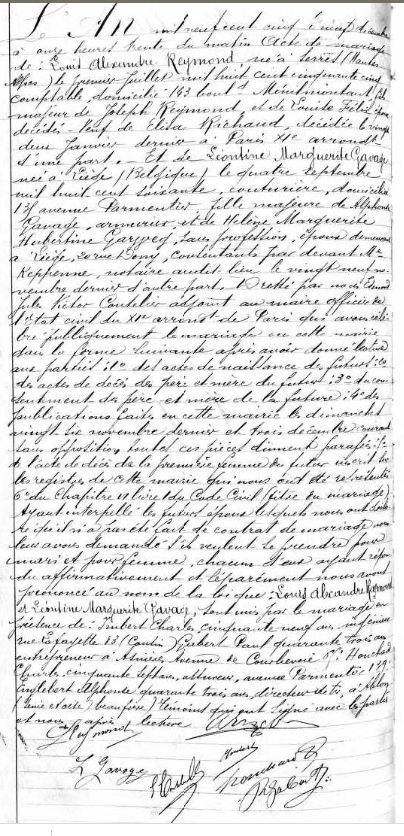 L'An mil neuf cent cinq le neuf décembre
à onze heures trente du matin Acte de mariage
de : Louis Alexandre Reymond, né à Serres (Hautes
Alpes) le premier Juillet mil huit cent cinquante cinq
comptable, domicilié 143 boulᵈ Ménilmontant, fils
majeur de Joseph Reymond et de Louise Félix, époux
décédés - Veuf de Elisa Richaud décédée le vingt
deux Janvier dernier à Paris XIᵉ arrondᵗ
d'une part. - Et de Léontine Marguerite Gavage
née à Liège (Belgique) le quatre septembre
mil huit cent soixante, couturière, domiciliée
137 avenue Parmentier fille majeure de Alphonse
Gavage, armurier, et de Hélène Marguerite
Hubertine sans profession, époux demeurant
à Liège, 20 rue consentants par devant Mᵉ
Keppenne, notaire audit lieu le vingt neuf no-
vembre dernier d'autre part. - Dressé par nous
Jules Victor Caudelier adjoint au maire officier de
l'état civil du XIᵉ arrondᵗ de Paris qui avons célé
bré publiquement le mariage en cette mairie
dans la forme suivante après avoir donné lecture
aux parties : 1° des actes de naissance des futurs : 2°
des actes de décès des père et mère du futur : 3° du con
sentment des père et mère de la future : 4° des
publications faites en cette mairie les dimanches
vingt six novembre dernier et trois décembre courant
sans opposition, toutes ces pièces dûment parafées : 5°
de l'acte de décès de la première femme du futur inscrit sur
les registres de cette mairie qui nous ont été représentés
6° du chapitre VI livre 1 du Code Civil (titre du mariage)
Ayant interpellé les futurs époux lesquels nous ont décla
ré qu'il n'a pas été fait de contrat de mariage nous
leur avons demandé s'ils veulent se prendre pour
mari et pour femme, chacun d'eux ayant répon
du affirmativement et séparément nous avons
prononcé au nom de la loi que : Louis Alexandre Reymond
et Léontine Marguerite Gavage, sont unis par le mariage en
présence de : Imbert Charles, cinquante neuf ans, ingénieur
rue Lafayette 13 (Cousin) Gubert Paul quarante trois ans
entrepreneur à Asnières Avenue de Courbevoie
Charles, cinquante sept ans, avenue Parmentier 139 :
Englebert Alphonse quarante trois ans, directeur de à Ablon
(Seine et Oise) (beaufrère) Témoins qui ont signé avec les parties
et nous, après lecture
Reymond
L Gavage